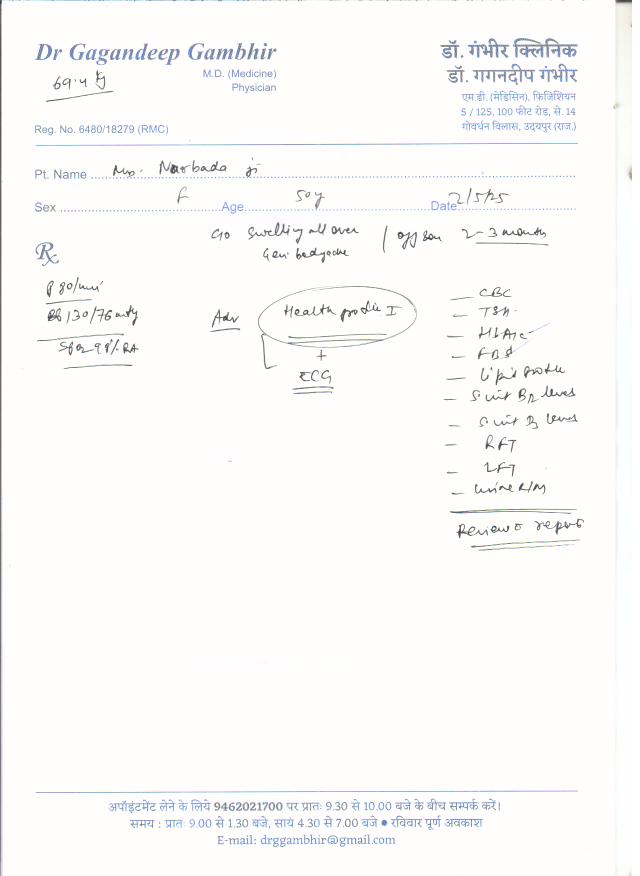 Dr Gagandeep Gambhir
69.4 kg
M.D. (Medicine)
Physician
Reg. No. 6480/18279 (RMC)
डॉ. गंभीर क्लिनिक
डॉ. गगनदीप गंभीर
एम.डी. (मेडिसिन), फिजिशियन
5 / 125, 100 फीट रोड, से. 14
गोवर्धन विलास, उदयपुर (राज.)
Pt. Name Mrs. Narbada ji
Sex F Age 50y Date 2/5/25
Rx
C/o Swelling all over / off & on 2-3 months
Gen. bodyache
P 80/min
BP 130/76 mmHg
SpO2 99% RA
Adv Health profile I
+
ECG
— CBC
— TSH
— HbA1c
— FBS
— Lipid profile
— S. vit B12 levels
— S. vit D3 levels
— RFT
— LFT
— Urine R/M
Review c report
अपॉइंटमेंट लेने के लिये 9462021700 पर प्रातः 9.30 से 10.00 बजे के बीच सम्पर्क करें।
समय : प्रातः 9.00 से 1.30 बजे, सायं 4.30 से 7.00 बजे ● रविवार पूर्ण अवकाश
E-mail: drggambhir@gmail.com